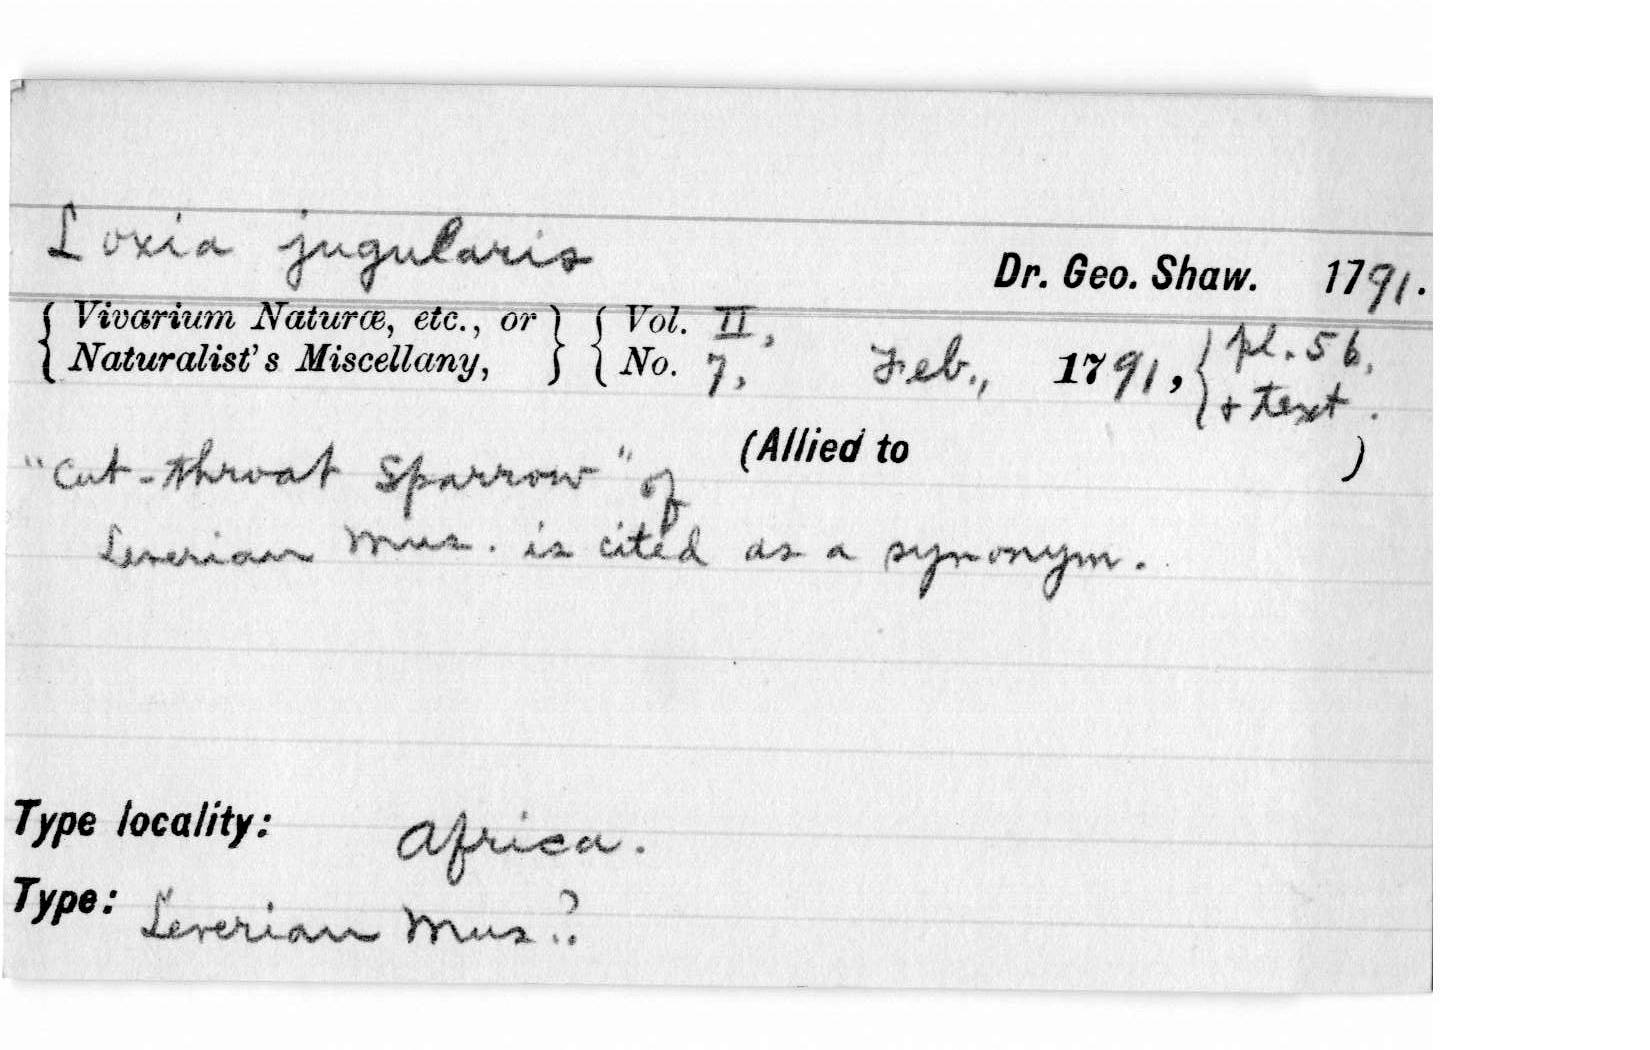 Loxia jugularis
Dr. Geo. Shaw. 1791.
{ Vivarium Naturæ, etc., or } { Vol. II, Feb., 1791, { pl. 56,
{ Naturalist's Miscellany, } { No. 7, { + text.
(Allied to )
"Cut-throat Sparrow" of
Leverian Mus. is cited as a synonym.
Type locality: Africa.
Type: Leverian Mus.?